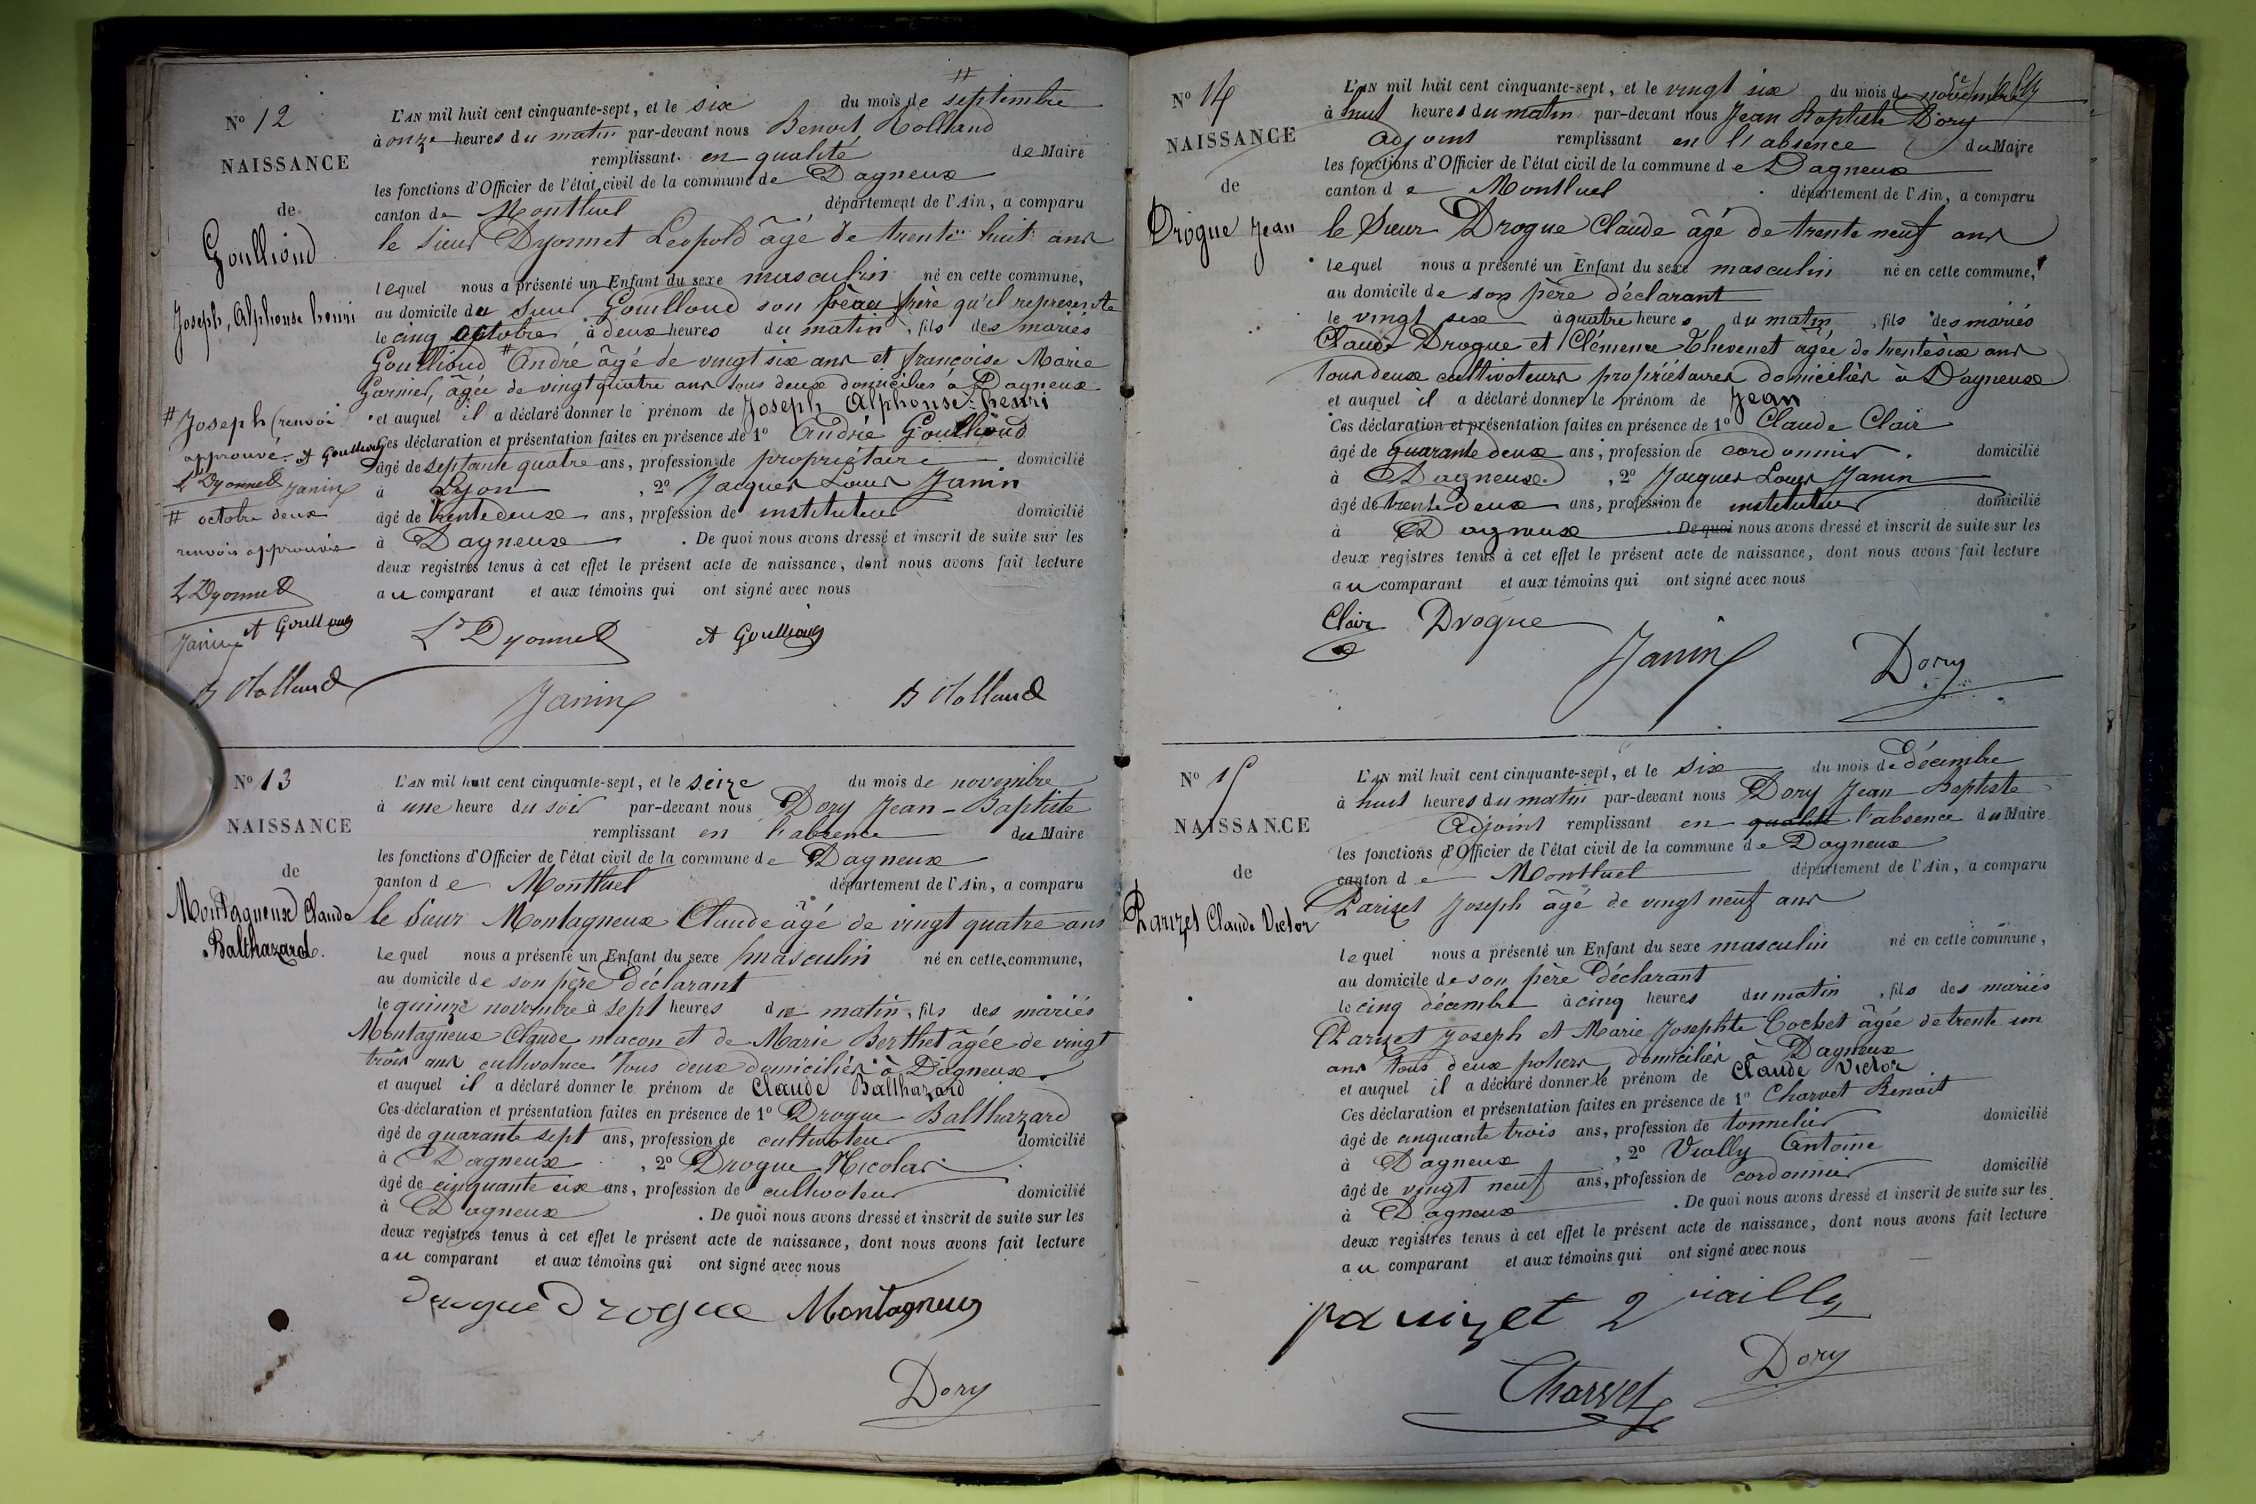 Nº 12
NAISSANCE
de
Goulliond
Joseph, Alphonse henri
# Joseph (renvoi
approuvé. A Goulliond
L Dyonnet Janin
# octobre deux
renvois approuvés
L Dyonnet
Janin A Goulliond
B Rolland
#
L'AN mil huit cent cinquante-sept, et le six du mois de septembre
à onze heures du matin par-devant nous Benoit Rolland
remplissant en qualité de Maire
les fonctions d'Officier de l'état civil de la commune de Dagneux
canton de Montluel département de l'Ain, a comparu
le sieur Dyonnet Leopold âgé de trente huit ans
lequel nous a présenté un Enfant du sexe masculin né en cette commune,
au domicile du sieur Goulloud son beau frère qu'il represente
le cinq octobre à deux heures du matin, fils des mariés
Goulliond # André âgé de vingt six ans et françoise Marie
Garnier, âgée de vingt quatre ans tous deux domiciliés à Dagneux
et auquel il a déclaré donner le prénom de Joseph Alphonse henri
Ces déclaration et présentation faites en présence de 1º André Goulliond
âgé de septante quatre ans, profession de propriétaire domicilié
à Lyon, 2º Jacques Louis Janin
âgé de trente deux ans, profession de instituteur domicilié
à Dagneux. De quoi nous avons dressé et inscrit de suite sur les
deux registres tenus à cet effet le présent acte de naissance, dont nous avons fait lecture
au comparant et aux témoins qui ont signé avec nous
Ld Dyonnet A Goulliond
Janin B Rolland
Nº 13
NAISSANCE
de
Montagneux Claude
Balthazard.
L'AN mil huit cent cinquante-sept, et le seize du mois de novembre
à une heure du soir par-devant nous Dory Jean-Baptiste
remplissant en l'absence du Maire
les fonctions d'Officier de l'état civil de la commune de Dagneux
canton de Montluel département de l'Ain, a comparu
le Sieur Montagneux Claude âgé de vingt quatre ans
lequel nous a présenté un Enfant du sexe masculin né en cette commune,
au domicile de son père déclarant
le quinze novembre à sept heures du matin, fils des mariés
Montagneux Claude maçon et de Marie Berthet âgée de vingt
trois ans cultivatrice tous deux domiciliés à Dagneux.
et auquel il a déclaré donner le prénom de Claude Balthazard
Ces déclaration et présentation faites en présence de 1º Drogue Balthazard
âgé de quarante sept ans, profession de cultivateur domicilié
à Dagneux, 2º Drogue Nicolas
âgé de cinquante six ans, profession de cultivateur domicilié
à Dagneux. De quoi nous avons dressé et inscrit de suite sur les
deux registres tenus à cet effet le présent acte de naissance, dont nous avons fait lecture
au comparant et aux témoins qui ont signé avec nous
Drogue Drogue Montagneux
Dory
Nº 14
NAISSANCE
de
Drogue Jean
L'AN mil huit cent cinquante-sept, et le vingt six du mois de novembre
à huit heures du matin par-devant nous Jean Baptiste Dory
Adjoint remplissant en l'absence du Maire
les fonctions d'Officier de l'état civil de la commune de Dagneux
canton de Montluel département de l'Ain, a comparu
le Sieur Drogue Claude âgé de trente neuf ans
lequel nous a présenté un Enfant du sexe masculin né en cette commune,
au domicile de son père déclarant
le vingt six à quatre heures du matin, fils des mariés
Claude Drogue et Clémence Thevenet agée de trente six ans
tous deux cultivateurs propriétaires domiciliés à Dagneux
et auquel il a déclaré donner le prénom de Jean
Ces déclaration et présentation faites en présence de 1º Claude Clair
âgé de quarante deux ans, profession de cordonnier domicilié
à Dagneux, 2º Jacques Louis Janin
âgé de trente deux ans, profession de instituteur domicilié
à Dagneux De quoi nous avons dressé et inscrit de suite sur les
deux registres tenus à cet effet le présent acte de naissance, dont nous avons fait lecture
au comparant et aux témoins qui ont signé avec nous
Clair Drogue
Janin Dory
Nº 15
NAISSANCE
de
Parizet Claude Victor
L'AN mil huit cent cinquante-sept, et le six du mois de décembre
à huit heures du matin par-devant nous Dory Jean Baptiste
Adjoint remplissant en qualité l'absence du Maire
les fonctions d'Officier de l'état civil de la commune de Dagneux
canton de Montluel département de l'Ain, a comparu
Parizet Joseph âgé de vingt neuf ans
lequel nous a présenté un Enfant du sexe masculin né en cette commune,
au domicile de son père déclarant
le cinq décembre à cinq heures du matin, fils des mariés
Parizet Joseph et Marie Josephte Cochet âgée de trente un
ans tous deux potiers, domiciliés à Dagneux
et auquel il a déclaré donner le prénom de Claude Victor
Ces déclaration et présentation faites en présence de 1º Charvet Benoit
âgé de cinquante trois ans, profession de tonnelier domicilié
à Dagneux, 2º Vially Antoine
âgé de vingt neuf ans, profession de cordonnier domicilié
à Dagneux. De quoi nous avons dressé et inscrit de suite sur les
deux registres tenus à cet effet le présent acte de naissance, dont nous avons fait lecture
au comparant et aux témoins qui ont signé avec nous
parizet viailly
Charvet Dory